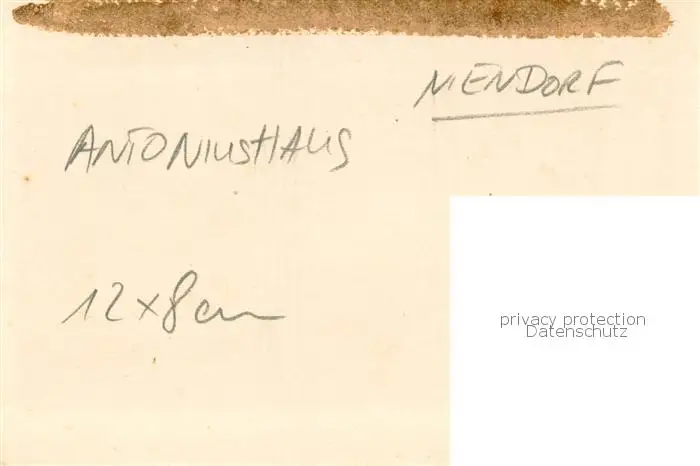 NIENDORF
ANTONIUSHAUS
12 x 8 cm
privacy protection
Datenschutz